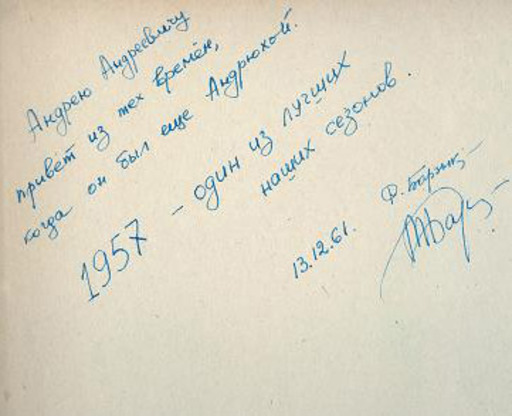 Андрею Андреевичу
привет из тех времён,
когда он был еще Андрюхой.
1957 – один из лучших
наших сезонов.
13.12.61.